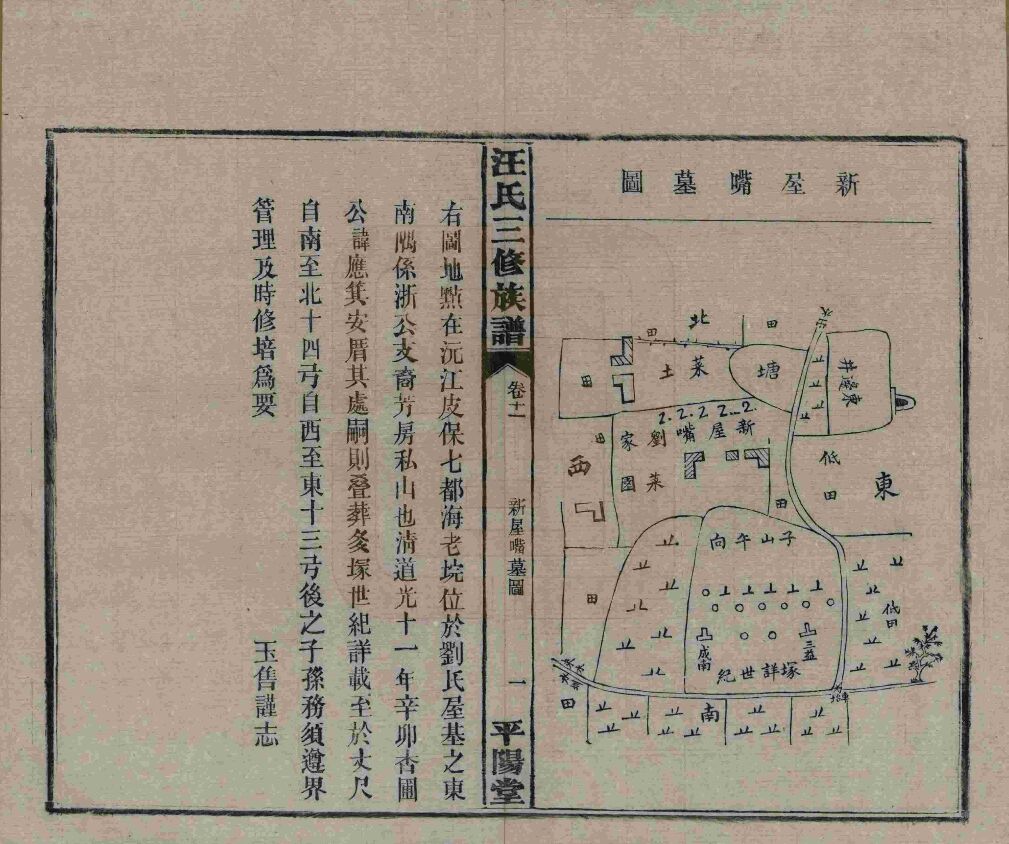 新屋嘴墓圖
北
田
田
菜土
塘
井邊東
田
新屋嘴
劉家
菜園
田
西
低田
東
田
子山午向
田
低田
成南
三益
塚詳世紀
田
南
汪氏三修族譜
卷十一
新屋嘴墓圖
一
平陽堂
右圖地㸃在沅江皮保七都海老垸位於劉氏屋基之東
南隅係浙公支裔芳房私山也清道光十一年辛卯杳圃
公諱應箕安厝其處嗣則叠葬多塚世紀詳載至於丈尺
自南至北十四弓自西至東十三弓後之子孫務須遵界
管理及時修培爲要
玉售謹志